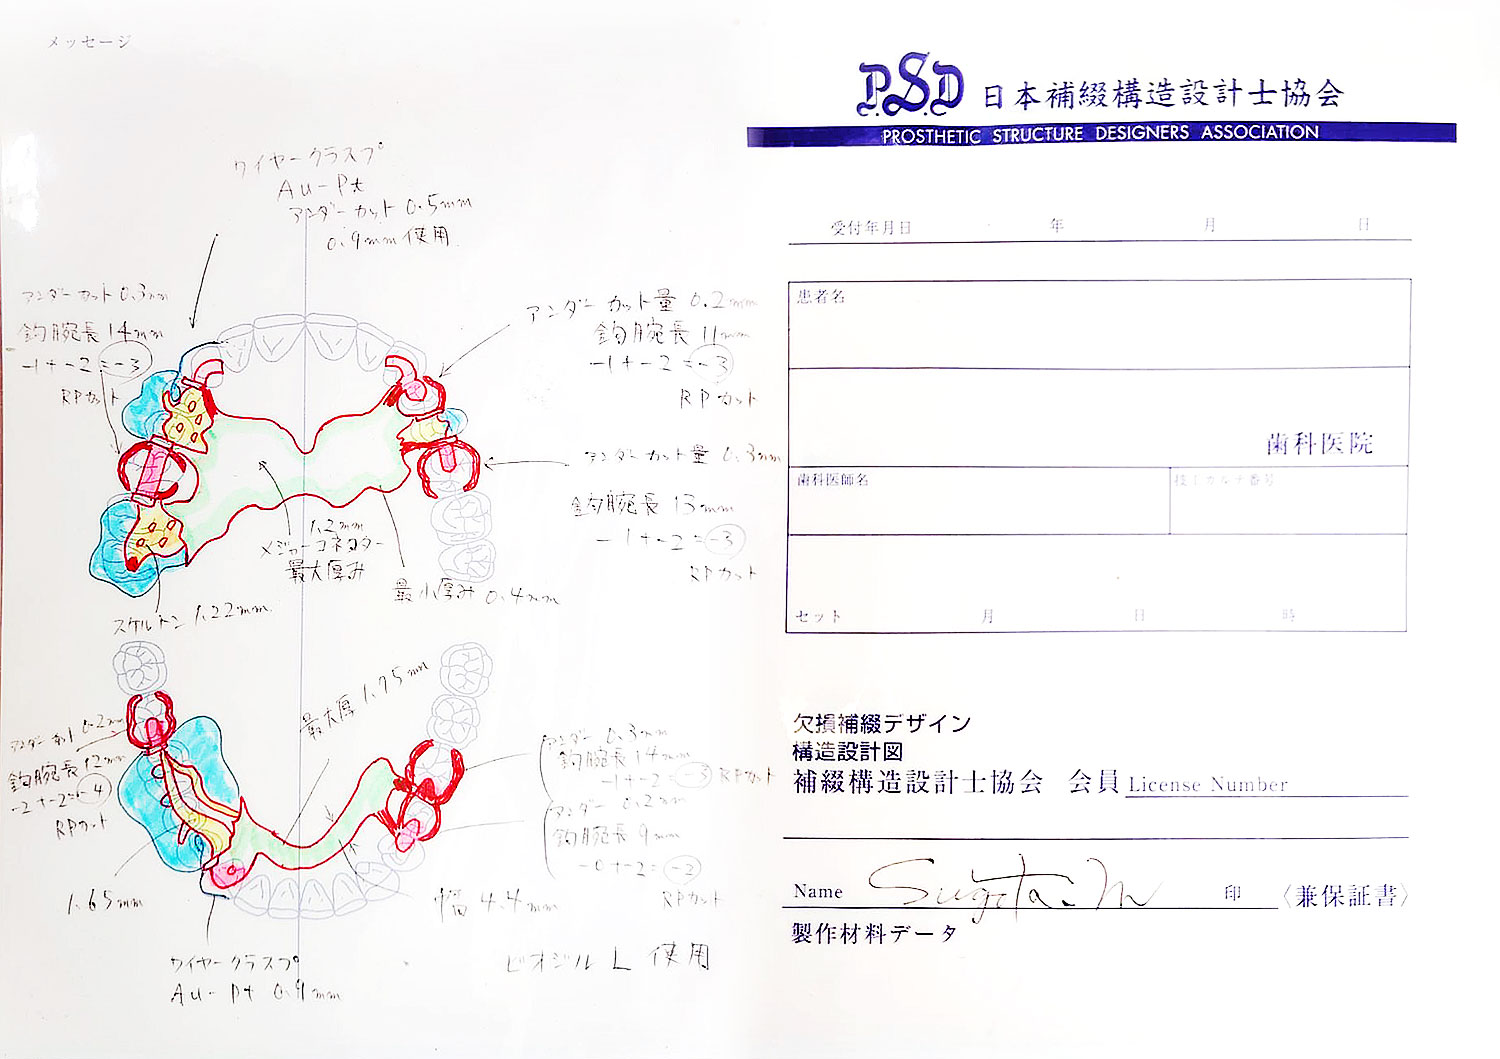 メッセージ
ワイヤークラスプ
Au-Pt
アンダーカット 0.5mm
0.9mm 使用
アンダーカット 0.3mm
鈎腕長 14mm
-1+-2=-3
RPカット
アンダーカット量 0.2mm
鈎腕長 11mm
-1+-2=-3
RPカット
アンダーカット量 0.3mm
鈎腕長 13mm
-1+-2=-3
RPカット
1.2mm
メジャーコネクター
最大厚み
最小厚み 0.4mm
スケルトン 1.22mm
最大厚 1.75mm
アンダーカット 0.2mm
鈎腕長 12mm
-2+-2=-4
RPカット
アンダー 0.3mm
鈎腕長 14mm
-1+-2=-3 RPカット
アンダー 0.2mm
鈎腕長 9mm
-0+-2=-2
RPカット
1.65mm
幅 4.4mm
ワイヤークラスプ
Au-Pt 0.9mm
ビオジル L 使用
P.S.D 日本補綴構造設計士協会
PROSTHETIC STRUCTURE DESIGNERS ASSOCIATION
受付年月日 年 月 日
患者名
歯科医院
歯科医師名 技工カルテ番号
セット 月 日 時
欠損補綴デザイン
構造設計図
補綴構造設計士協会 会員 License Number
Name 印 〈兼保証書〉
製作材料データ